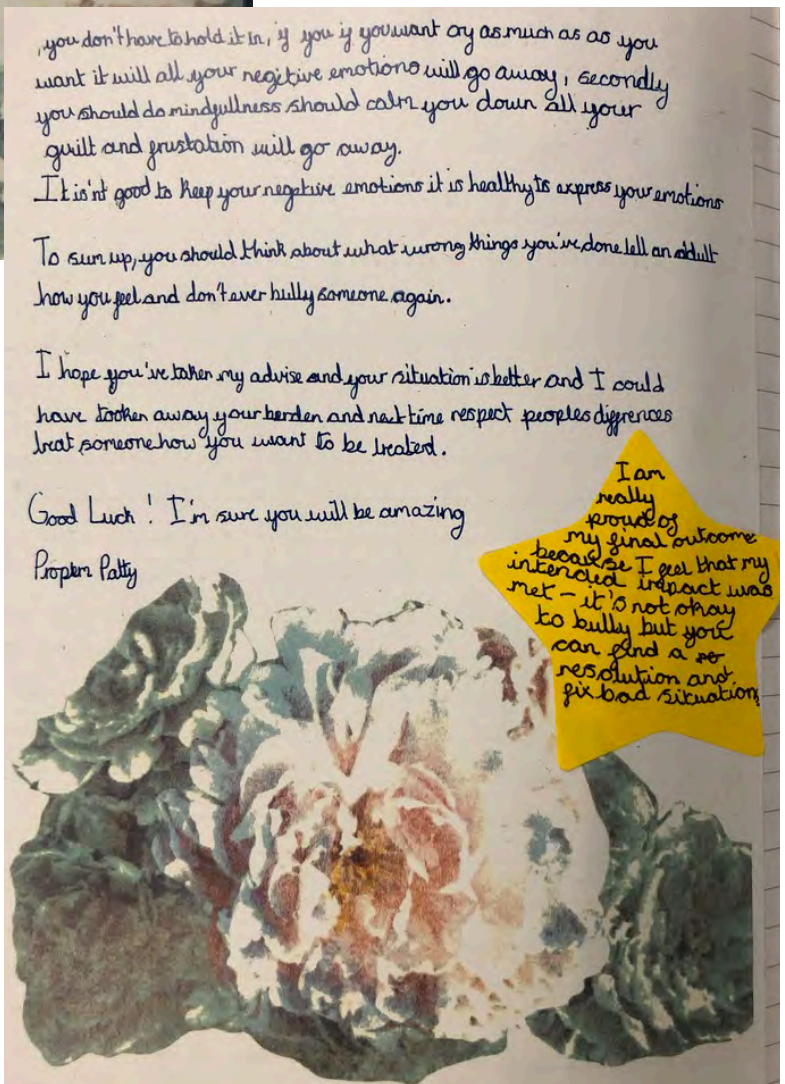 , you don't have to hold it in, if you if you want cry as much as as you
want it will all your negitive emotions will go away, secondly
you should do mindfullness should calm you down all your
guilt and frustation will go away.
It is'nt good to keep your negative emotions it is healthy to express your emotions
To sum up, you should think about what wrong things you've done tell an adult
how you feel and don't ever bully someone again.
I hope you've taken my advise and your situation is better and I could
have tooken away your berden and next time respect peoples diffrences
treat someone how you want to be treated.
Good Luck! I'm sure you will be amazing
Patty
I am
really
proud of
my final outcome
because I feel that my
intended impact was
met - it's not okay
to bully but you
can find a
resolution and
fix bad situations